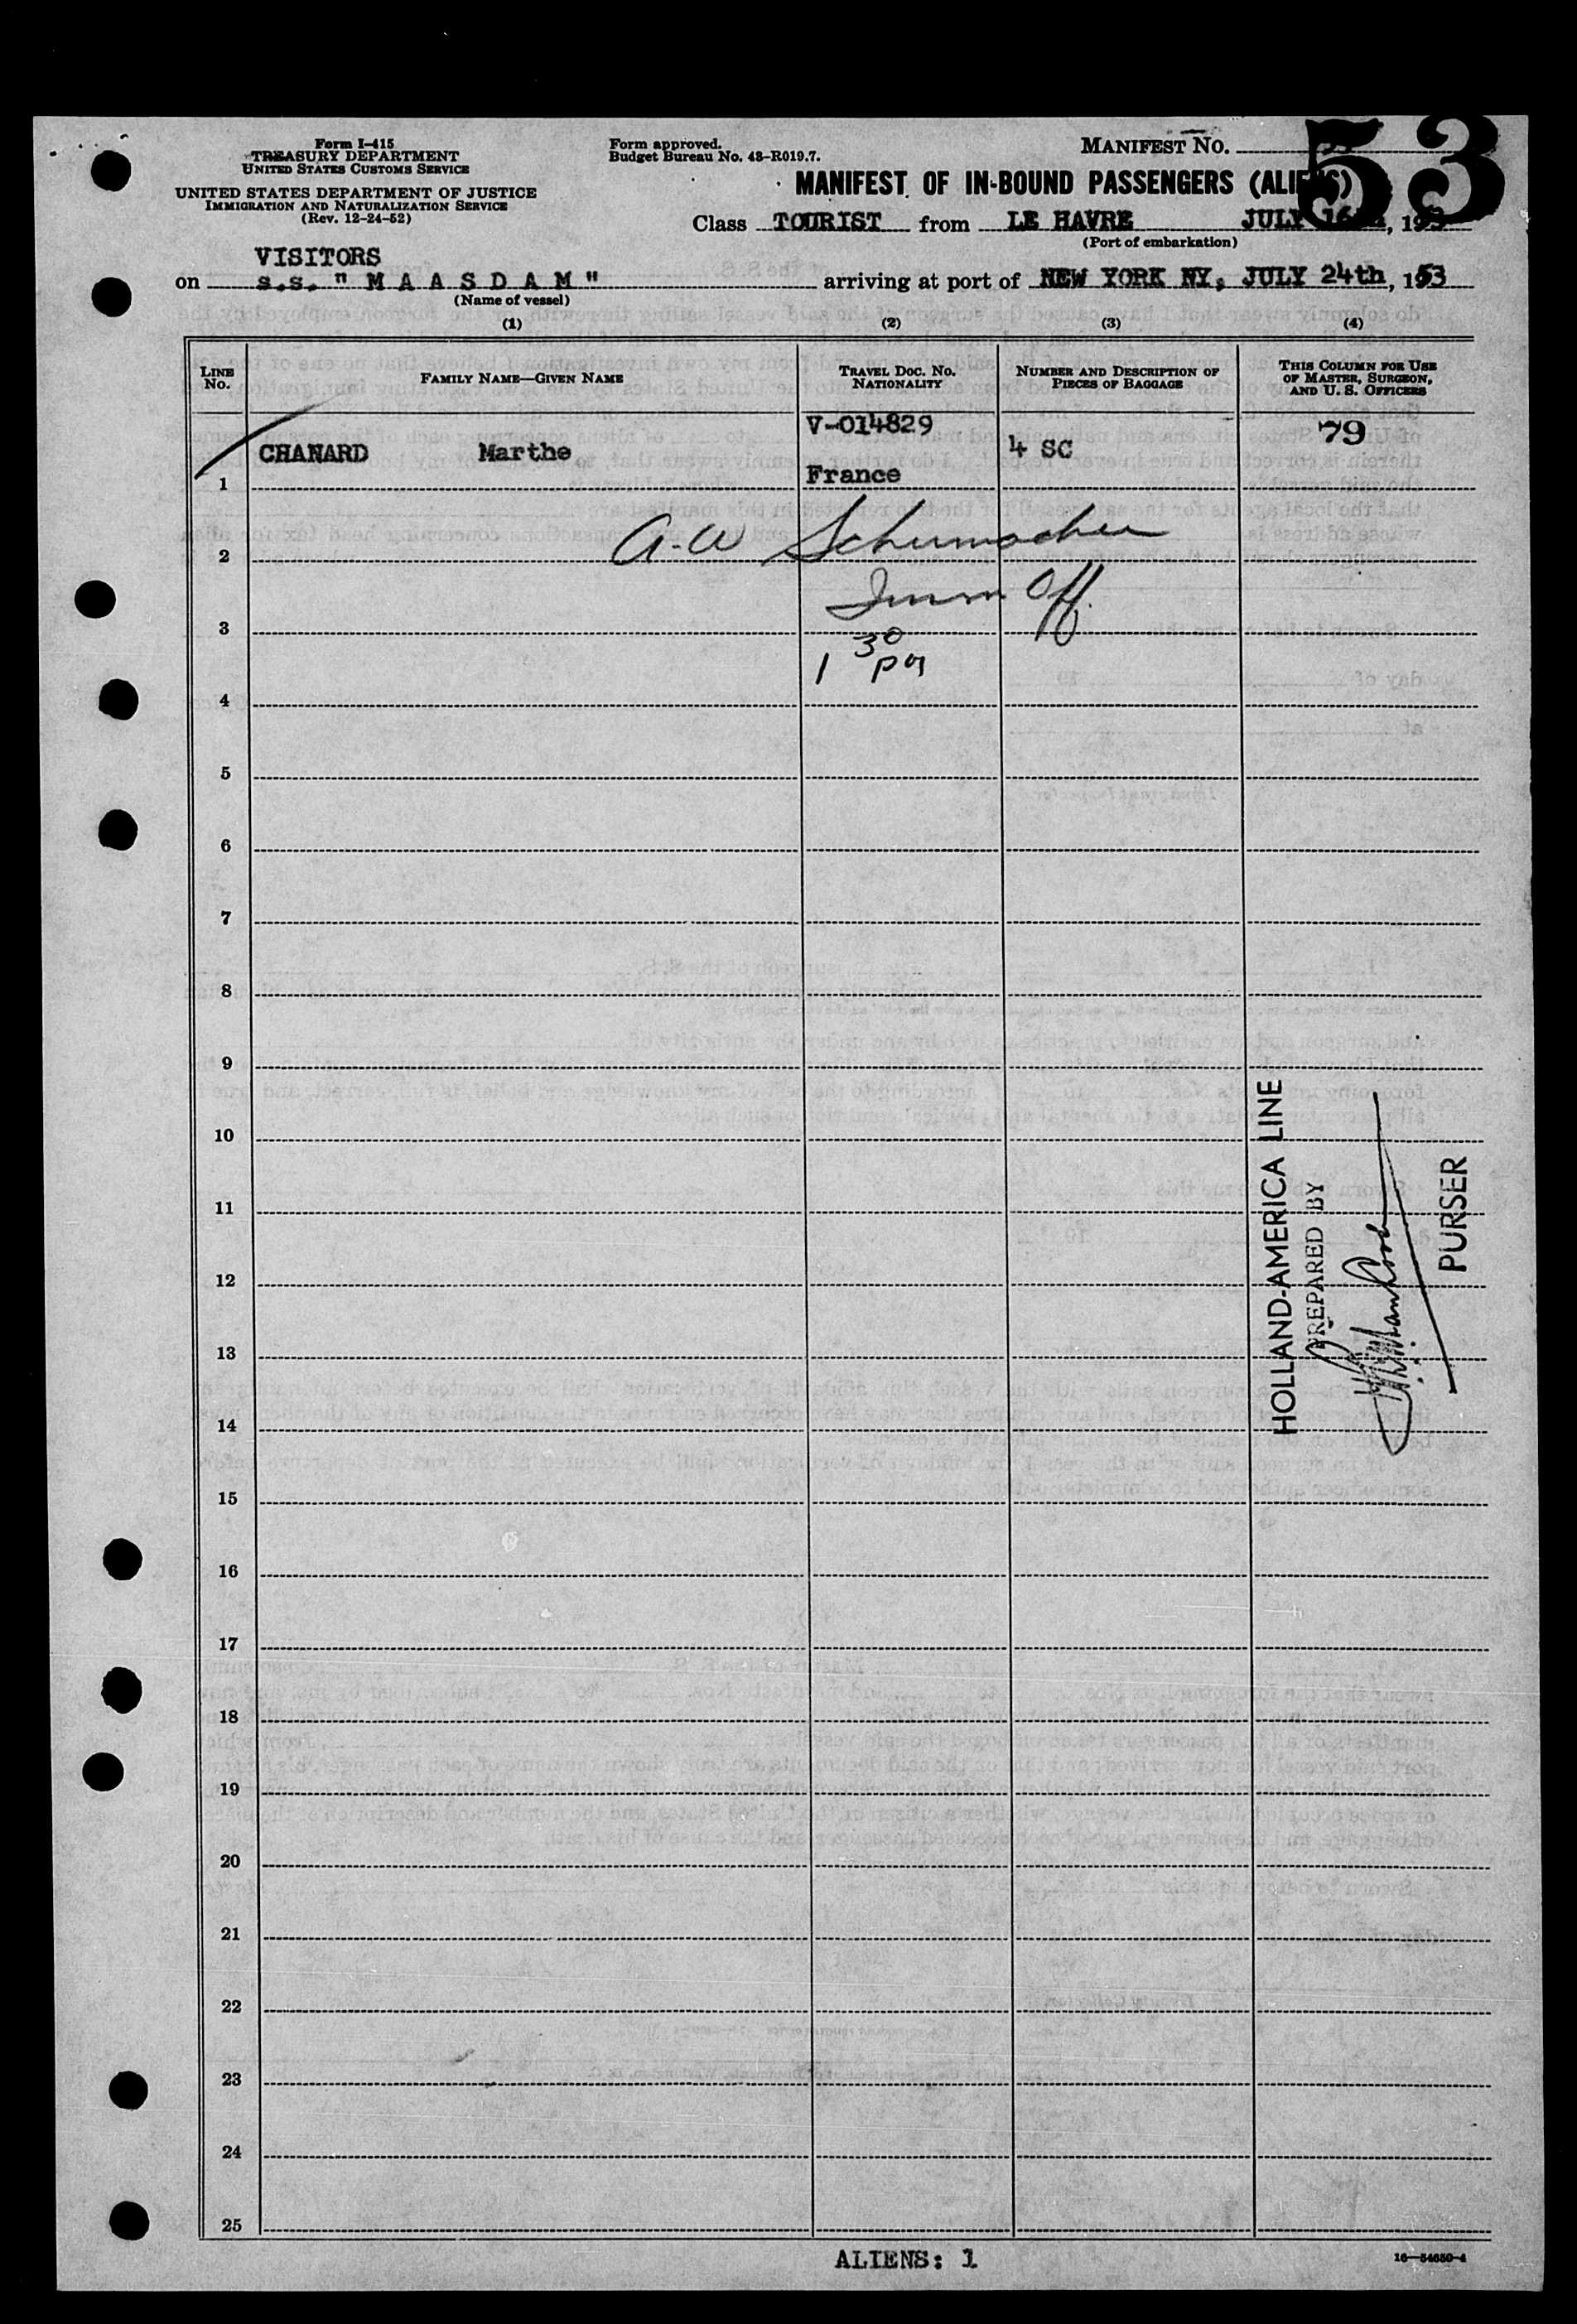 Form I-415
TREASURY DEPARTMENT
UNITED STATES CUSTOMS SERVICE
UNITED STATES DEPARTMENT OF JUSTICE
IMMIGRATION AND NATURALIZATION SERVICE
(Rev. 12-24-52)
Form approved.
Budget Bureau No. 43-R019.7.
MANIFEST NO.
53
MANIFEST OF IN-BOUND PASSENGERS (ALIENS)
Class TOURIST from LE HAVRE JULY 16th, 1953
(Port of embarkation)
VISITORS
on s.s. "M A A S D A M" arriving at port of NEW YORK NY, JULY 24th, 1953
(Name of vessel)
(1) (2) (3) (4)
LINE NO. FAMILY NAME—GIVEN NAME TRAVEL DOC. NO. NATIONALITY NUMBER AND DESCRIPTION OF PIECES OF BAGGAGE THIS COLUMN FOR USE OF MASTER, SURGEON, AND U. S. OFFICERS
1 CHANARD Marthe V-014829 France 4 SC 79
2 A-W Schumacher
3 Imm Off.
1 30 PM
4
5
6
7
8
9
10
11
12
13
14
15
16
17
18
19
20
21
22
23
24
25
HOLLAND-AMERICA LINE
PREPARED BY
PURSER
ALIENS: 1
16—54650-4